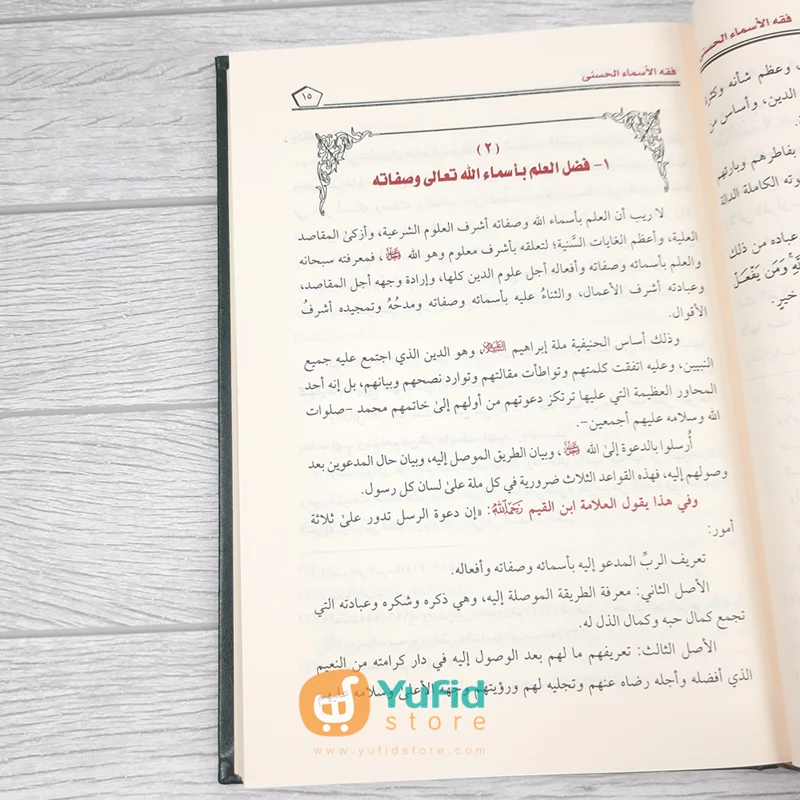 فقه الأسماء الحسنى
١٥
(٢)
١- فضل العلم بأسماء الله تعالى وصفاته
لا ريب أن العلم بأسماء الله وصفاته أشرف العلوم الشرعية، وأزكىٰ المقاصد
العلية، وأعظم الغايات السَّنية؛ لتعلقه بأشرف معلوم وهو الله ﷻ، فمعرفته سبحانه
والعلم بأسمائه وصفاته وأفعاله أجل علوم الدين كلها، وإرادة وجهه أجل المقاصد،
وعبادته أشرف الأعمال، والثناءُ عليه بأسمائه وصفاته ومدحُهُ وتمجيده أشرفُ
الأقوال.
وذلك أساس الحنيفية ملة إبراهيم عليه السلام، وهو الدين الذي اجتمع عليه جميع
النبيين، وعليه اتفقت كلمتهم وتواطأت مقالتهم وتوارد نصحهم وبيانهم، بل إنه أحد
المحاور العظيمة التي عليها ترتكز دعوتهم من أولهم إلىٰ خاتمهم محمد -صلوات
الله وسلامه عليهم أجمعين-.
أُرسلوا بالدعوة إلىٰ الله ﷻ، وبيان الطريق الموصل إليه، وبيان حال المدعوين بعد
وصولهم إليه، فهذه القواعد الثلاث ضرورية في كل ملة علىٰ لسان كل رسول.
وفي هذا يقول العلامة ابن القيم رحمه الله: «إن دعوة الرسل تدور علىٰ ثلاثة
أمور:
تعريف الربِّ المدعو إليه بأسمائه وصفاته وأفعاله.
الأصل الثاني: معرفة الطريقة الموصلة إليه، وهي ذكره وشكره وعبادته التي
تجمع كمال حبه وكمال الذل له.
الأصل الثالث: تعريفهم ما لهم بعد الوصول إليه في دار كرامته من النعيم
الذي أفضله وأجله رضاه عنهم وتجليه لهم ورؤيتهم وجهه الأعلىٰ وسلامه عليهم
فقه الأسماء الحسنى
وعظم شأنه وكثرة
الدين، وأساس من
بفاطرهم وبارئهم
الكاملة الدالة
عباده من ذلك
وَمَن يَفْعَلْ
خيرٍ.
YuFid
store
www.yufidstore.com